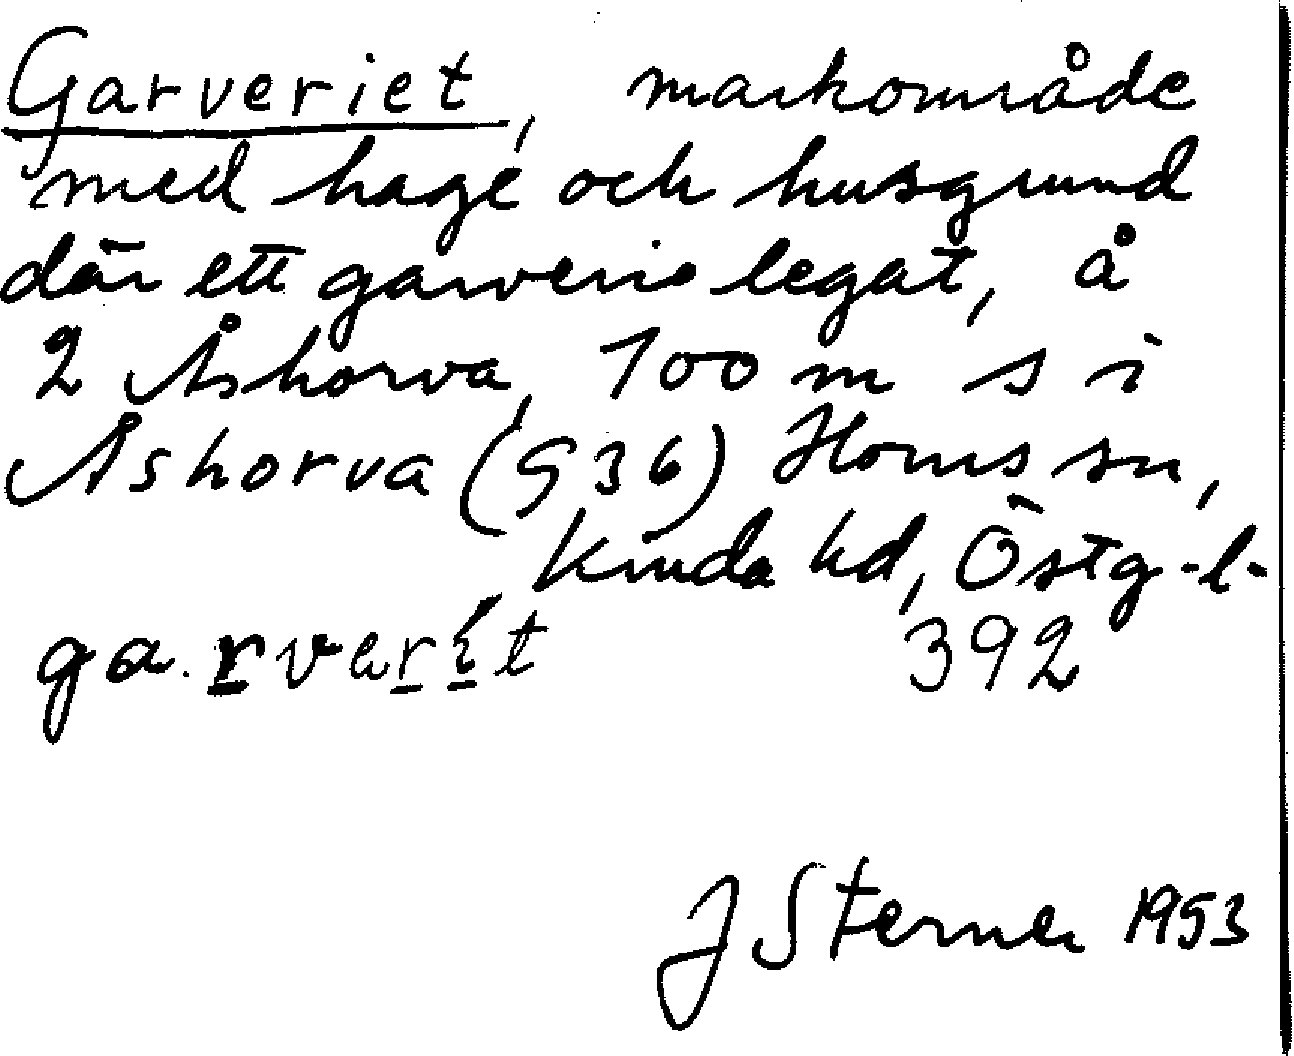 Garveriet, markområde
med hage och husgrund
där ett garveri legat, å
2 Åshorva, 100 m s i
Åshorva (S36) Horns sn,
Kinda hd, Östg.l.
ga.rverít 392
J Sterner 1953